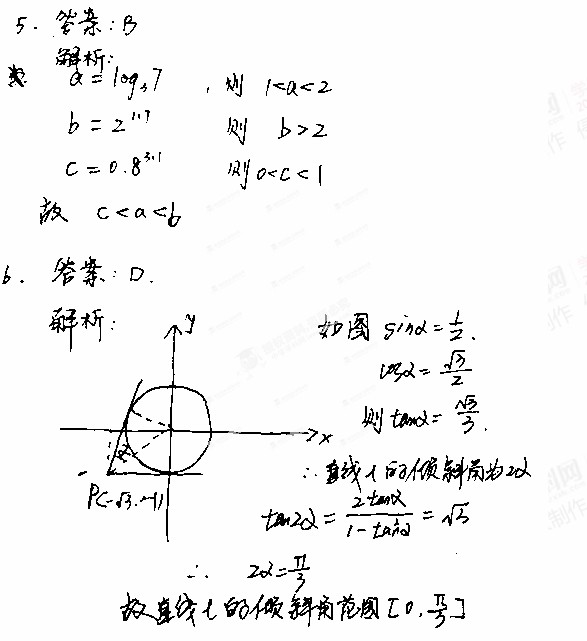 5. 答案:B
解析:
a=log₃7 , 则 1<a<2
b=2^1.1 则 b>2
c=0.8^3.1 则 0<c<1
故 c<a<b
6. 答案:D.
解析:
y
x
P(-√3,-1)
如图 sinα=1/2.
cosα=√3/2
则 tanα=√3/3.
∴直线l的倾斜角为2α
tan2α=2tanα/(1-tan²α)=√3
∴ 2α=π/3
故直线l的倾斜角范围[0,π/3]